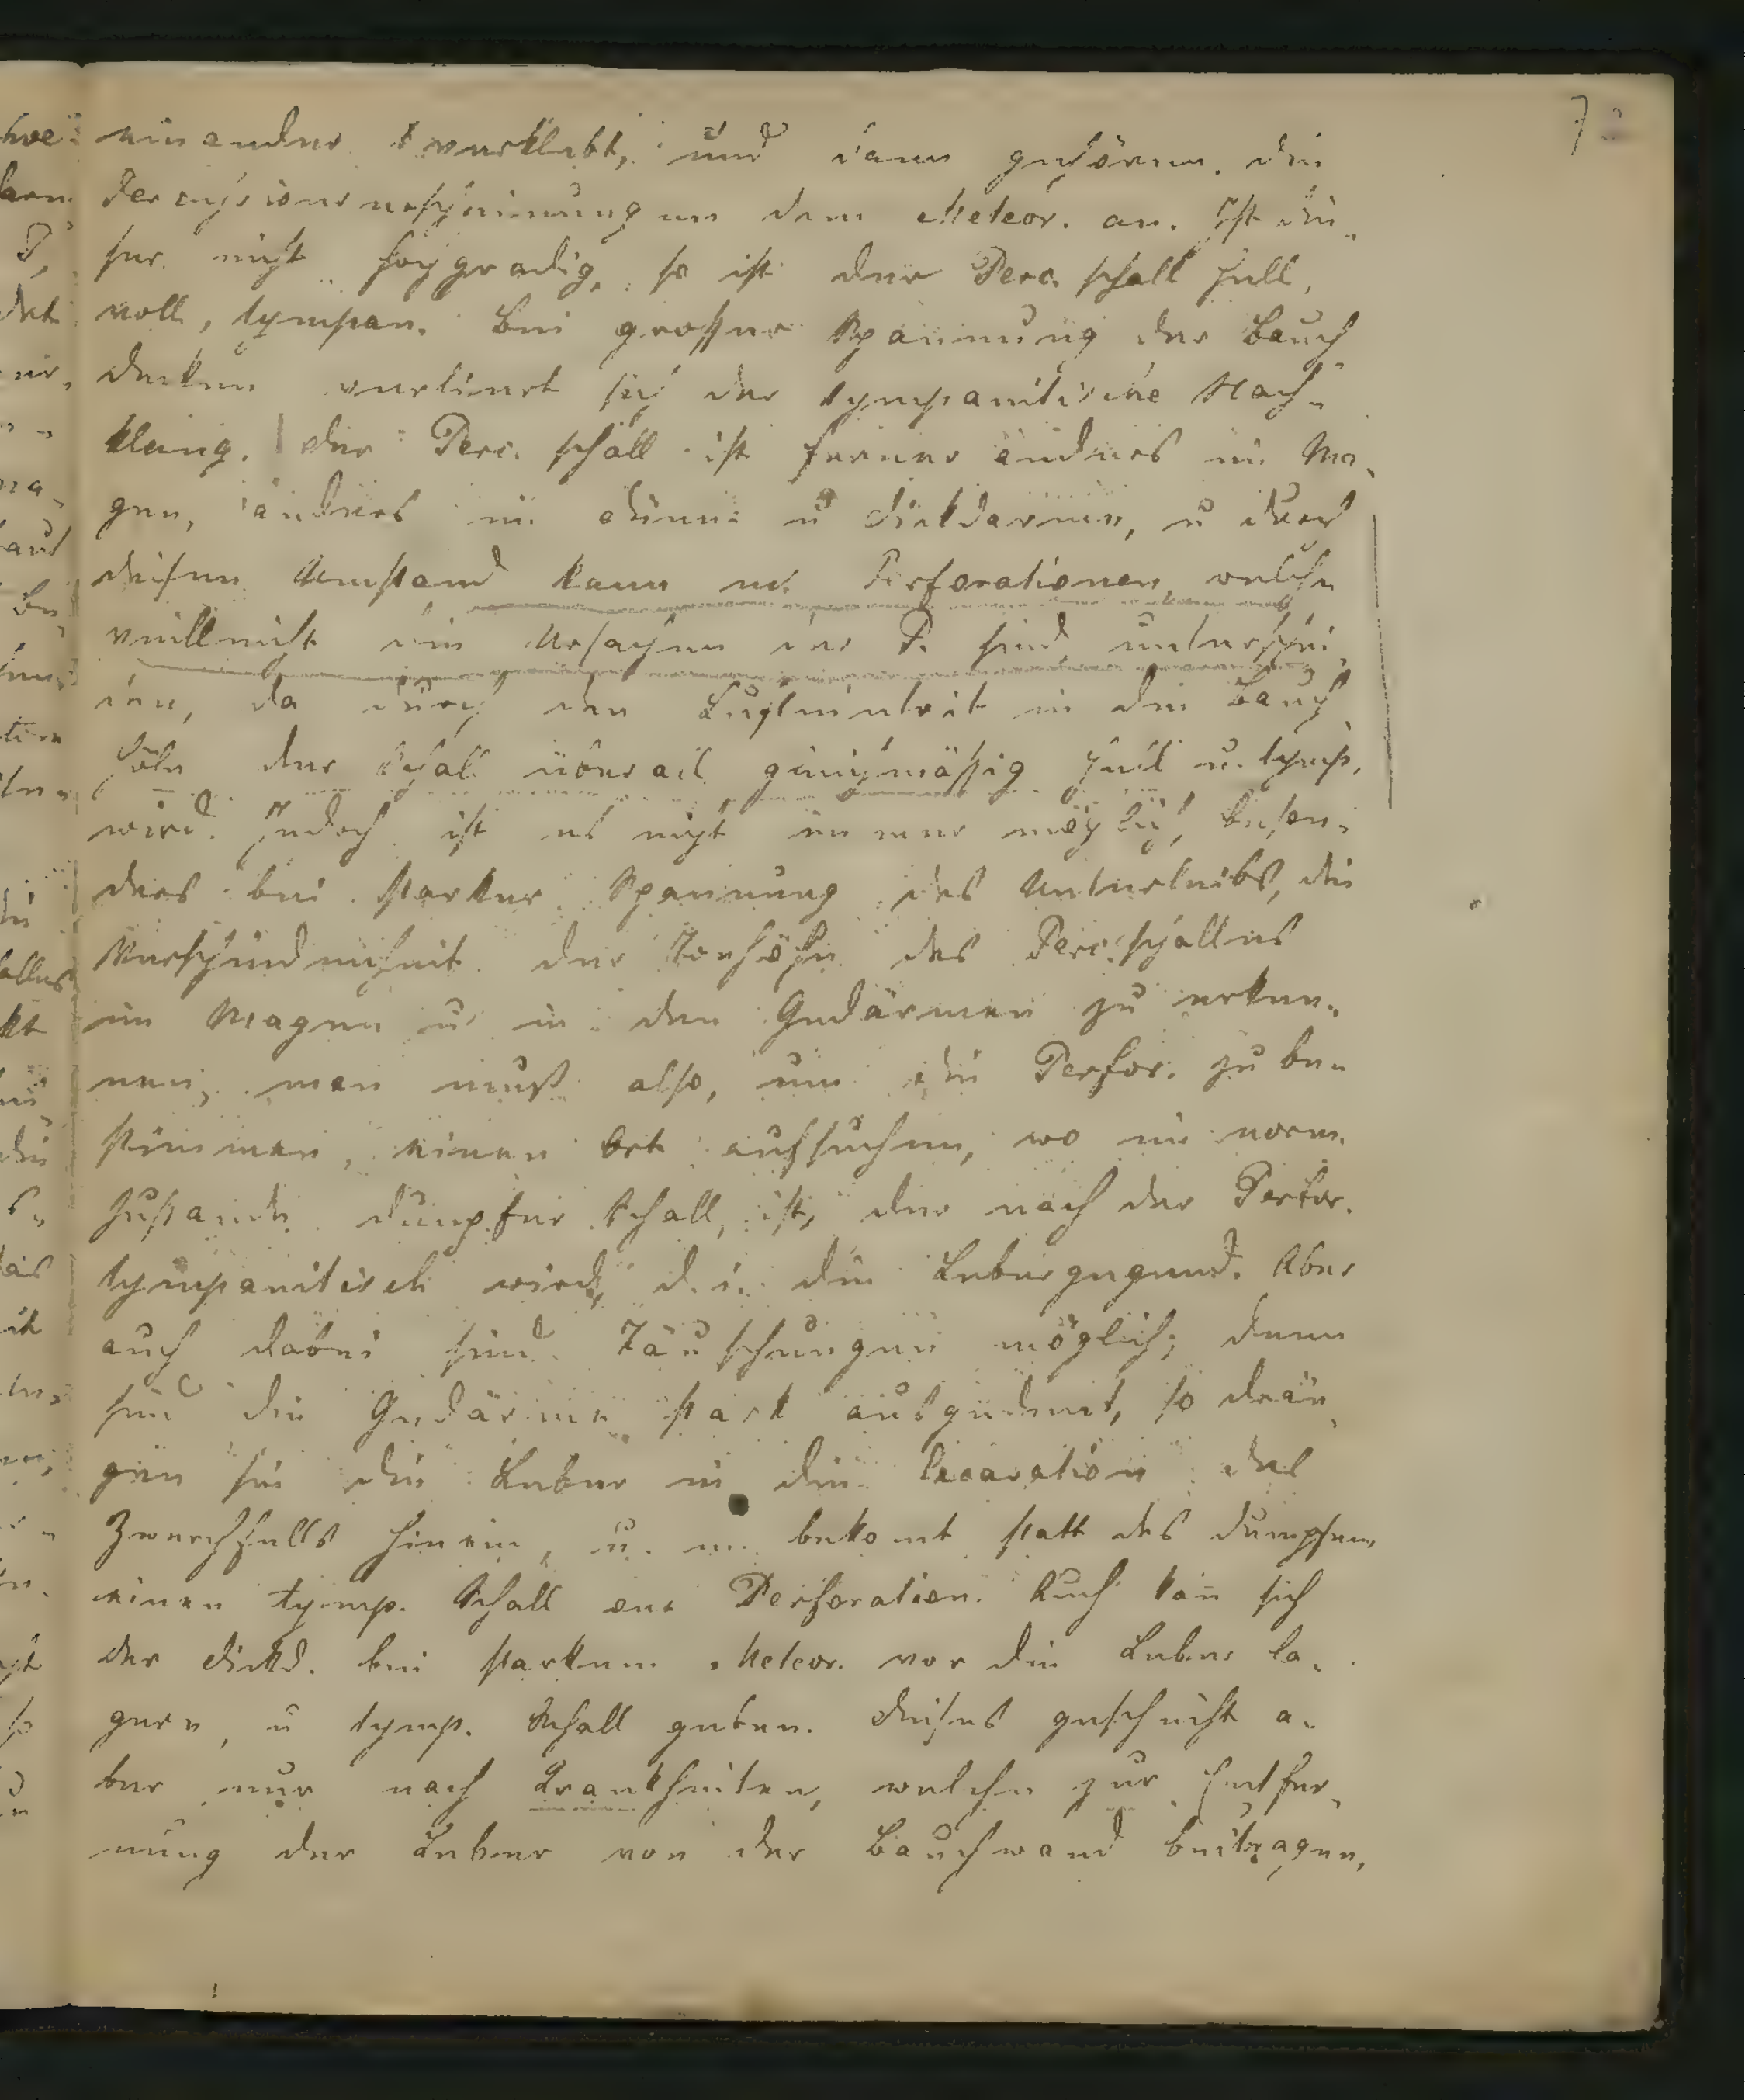 72
einander verklebt, und dann gehören die
Percussionserscheinungen dem Meteor. an. Ist die-
ser nicht hochgradig, so ist der Perc. schall hell,
voll, tympan. Bei grosser Spannung der Bauch-
decken verliert sich der tympanitische Nach-
klang. der Perc. schall ist ferner anders im Ma-
gen, anders im dünn u dickdarme, u durch
diesen Umstand kann m. Perforationen, welche
vielleicht die Ursachen der P. sind, unterschei-
den, da durch den Lufteintritt in die Bauch-
höle der Schall überall gleichmäßig hell u. tymp.
wird. Jedoch ist es nicht immer möglich, beson-
ders bei starker Spannung des Unterleibs, die
Verschiedenheit der Tonhöhe des Perc. schalles
im Magen u in den Gedärmen zu erken-
nen, man muß also, um die Perfor. zu be-
stimmen, einen Ort aufsuchen, wo im norm.
Zustande dumpfer Schall ist, der nach der Perfor.
tympanitisch wird, d. i. die Lebergegend. Aber
auch dabei sind Täuschungen möglich; denn
sind die Gedärme stark ausgedent, so drän-
gen sie die Leber in die Excavation des
Zwerchfells hinein, u. m. bekomt statt des dumpfen
einen tymp. Schall one Perforation. Auch kan sich
der dickd. bei starkem Meteor. vor die Leber la-
gern, u tymp. Schall geben. dieses geschieht a-
ber nur nach Krankheiten, welche zur Entfer-
nung der Leber von der Bauchwand beitragen,